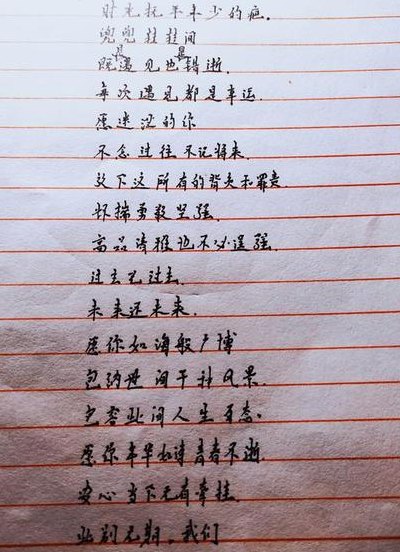 时光抚平年少的疤.
兜兜转转间
既是遇见也是错逝.
每次遇见都是幸运.
愿迷茫的你
不念过往 不记将来.
放下这所有的背负和罪责.
怀揣勇毅坚强.
高品清雅也不必逞强.
过去已过去.
未来还未来.
愿你如海般广博
包纳世间千种风景.
包容此间人生百态.
愿你年华如诗青春不逝
安心当下无有牵挂.
此别无期。我们